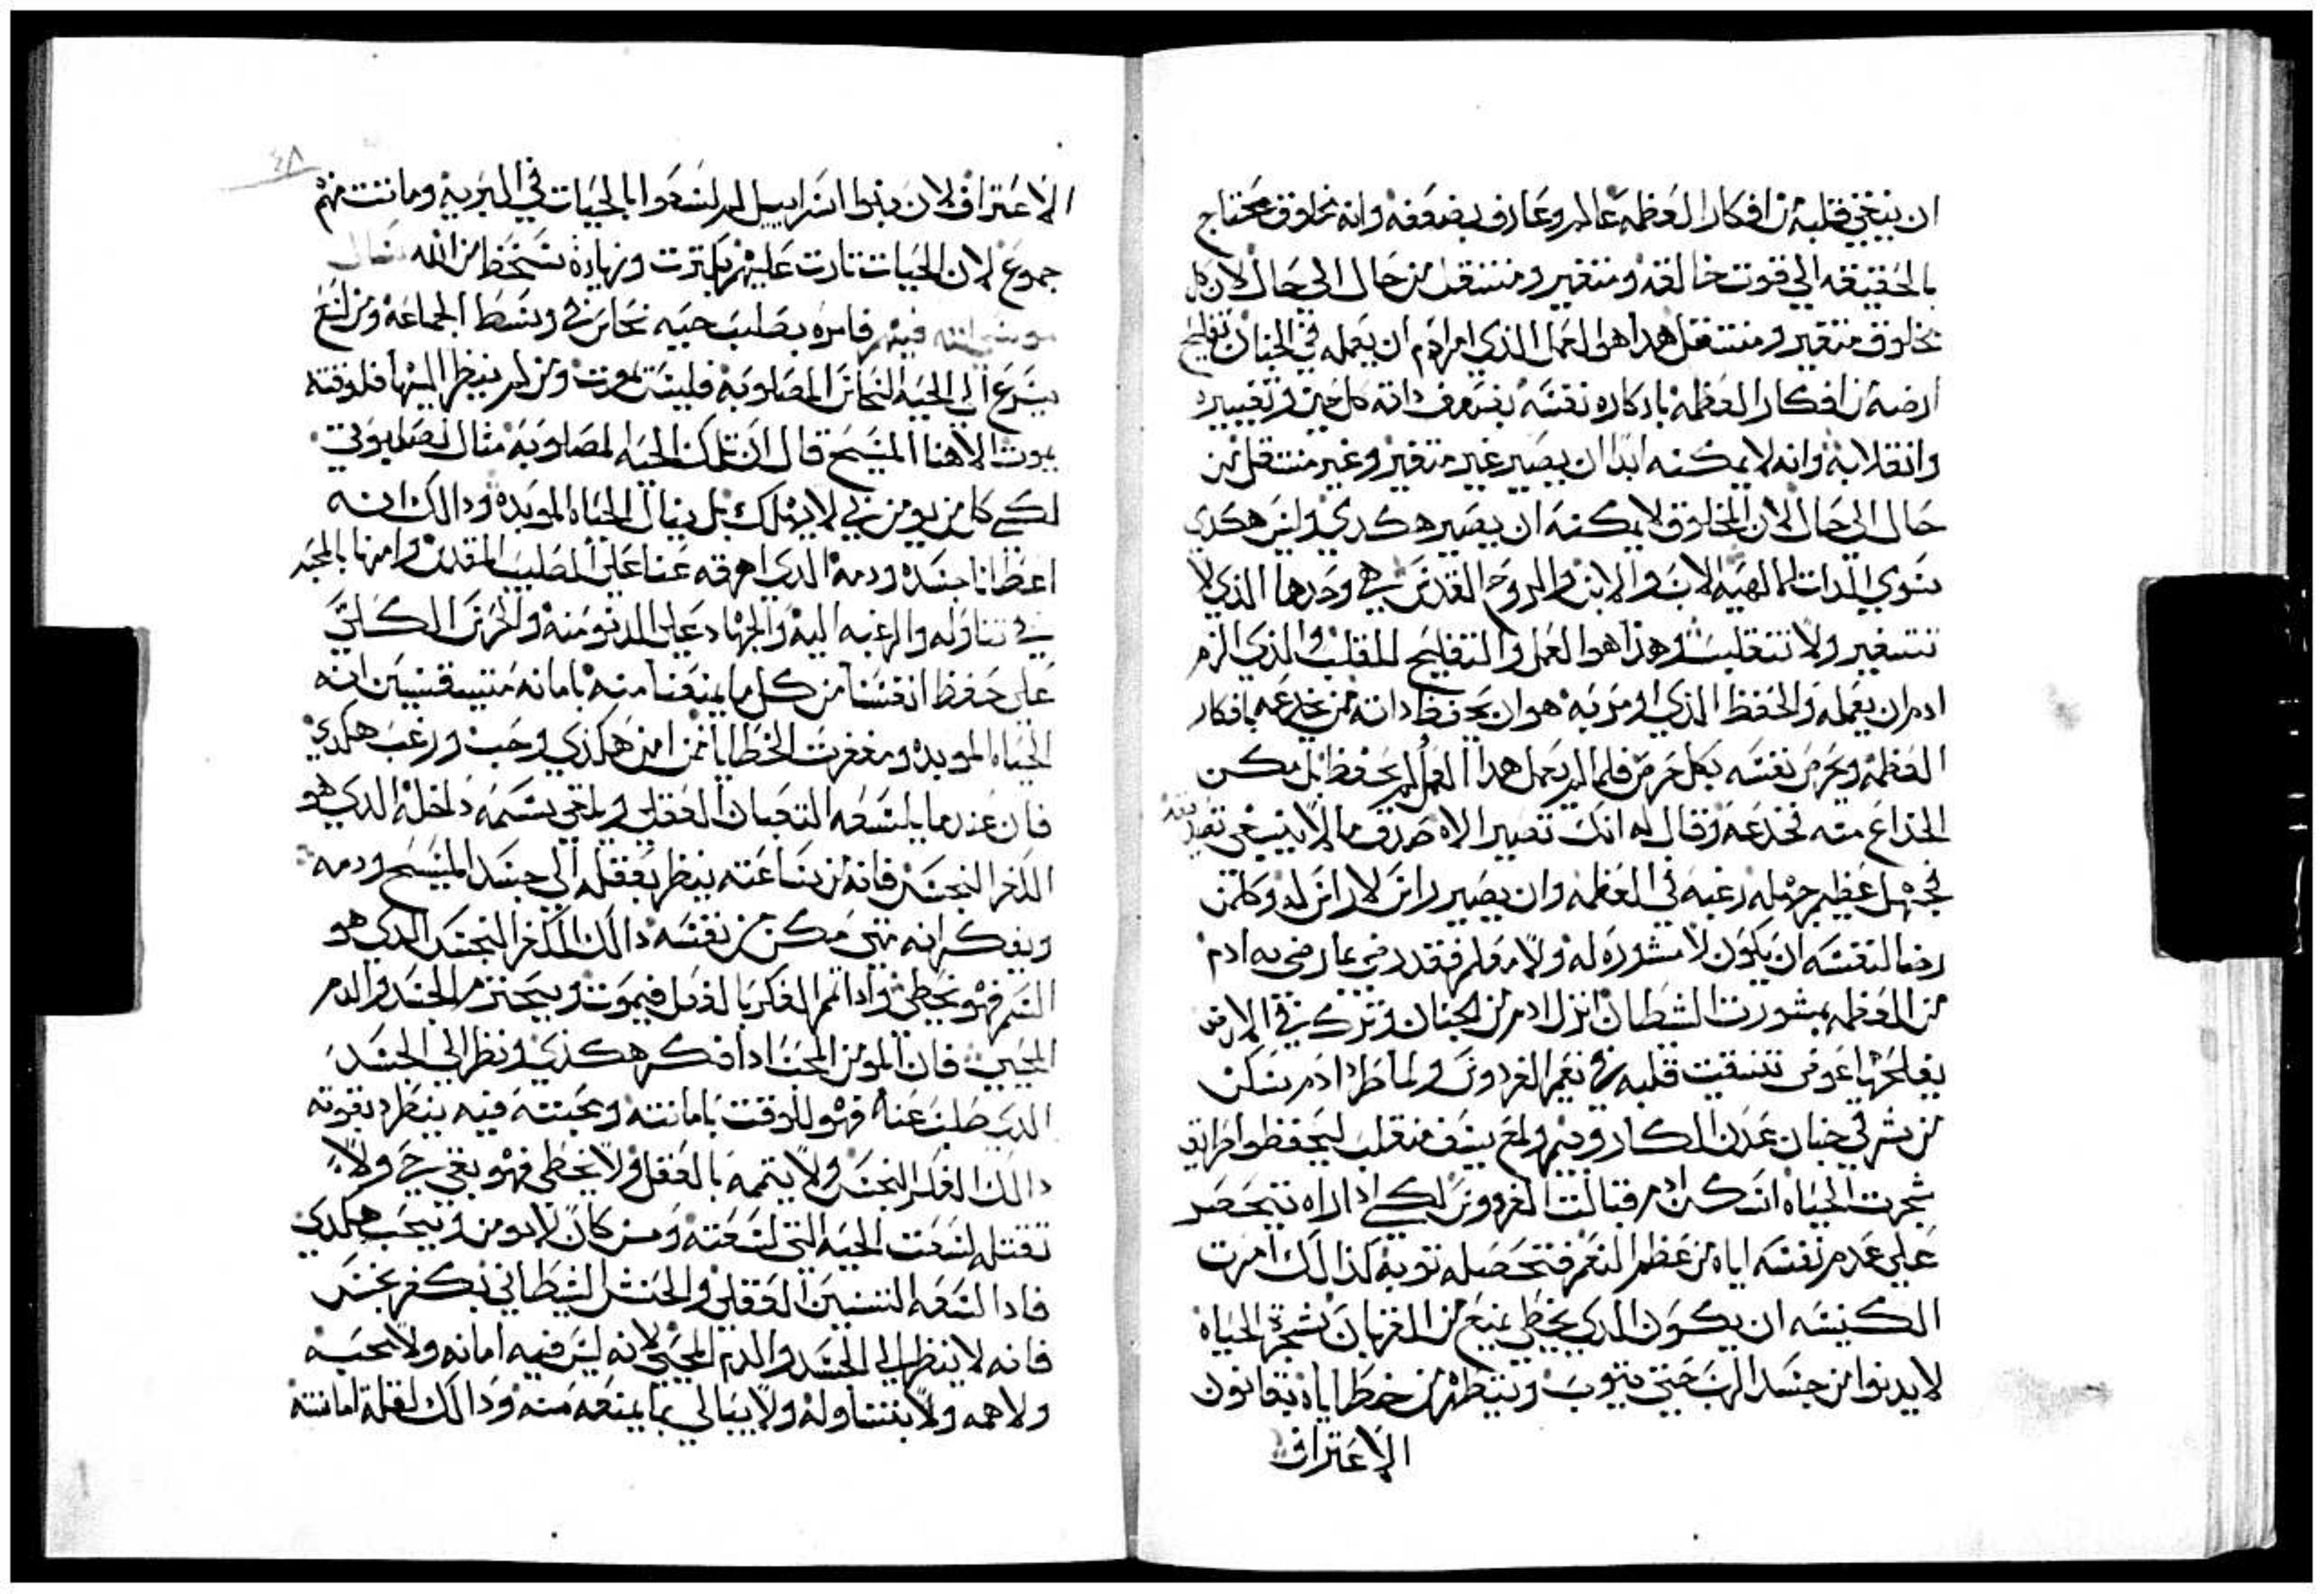 ان ينقي قلبه من افكار العظمه عالم وعارف بضعفه وانه مخلوق محتاج
بالحقيقه الي قوت خالقه ومتغير ومنتقل من حال الي حال لان كل
مخلوق متغير ومنتقل هدا هو العمل الذي امر ادم ان يعمله في الجنان تفليح
ارضه من افكار العظمه بادكاره نفسه بضعف داته كل حين وتغييره
وانقلابه وانه لا يمكنه ابدا ان يصير غير متغير وغير منتقل من
حال الي حال لان المخلوق لا يمكنه ان يصير هكدي وليس هكدي
سوي الدات الالهيه الاب والابن والروح القدس هي وحدها الذي لا
تتغير ولا تتقلب وهذا هو العمل والتفليح للقلب الذي الزم
ادم ان يعمله والحفظ الذي اومر به هو ان يحفظ داته من خدعه بافكار
العظمه ويحرص نفسه بكل حرص فلما لم يعمل هدا العمل لم يحفظ بل مكن
الخداع منه فخدعه وقال له انك تصير الاه صدق ما لا ينبغي تصديقه
لجهل عظيم جهله رغبه في العظمه وان يصير راس لا راس له وكلمن
رضا لنفسه ان يكون لا مشوره له ولا معلم فقد رضي بما رضي به ادم
من العظمه بمشورت الشطان انزل ادم من الجنان وترك في الارض
يفلحها عوض تنقيت قلبه في نعيم الفردوس ولما طرد ادم سكن
من شرقي جنان عدن الكاروبيم ولمع سيف منقلب ليحفظوا طرايق
شجرت الحياه اسكن ادم قبالت الفردوس لكي ادا راه يتحصر
علي عدم نفسه اياه من عظم النعم فتحصله توبه كذالك امرت
الكنيسه ان يكون الدي يخطي يمنع من القربان شجرة الحياه
لا يدنوا من جسد الرب حتي يتوب ويتطهر من خطاياه بقانون
الاعتراف
الاعتراف لان بنوا اسراييل لم لسدوا بالحيات في البريه وماتت منهم
جموع لان الحيات تارت عليهم بكترت وزيادة سخط من الله
موسي فيهم فامره بصلب حيه نحاس في وسط الجماعه ومن لسع
يسرع الي الحيه النحاس المصلوبه فليس يموت ومن لم ينظر اليها فلوقته
يموت الاهنا المسيح قال ان تلك الحيه المصلوبه مثال لصلبوتي
لكي كل من يومن بي لا يهلك بل ينال الحياه الموبده ودالك انه
اعطانا جسده ودمه الدي اهرقه عنا علي الصليب المقدس وامرنا بالمجد
في تناوله والرغبه اليه والجهاد علي الدنو منه والحرص الكلي
علي حفظ انفسنا من كل ما يمنعنا منه بامانه متيقنين انه
الحياه الموبده ومغفرت الخطايا فمن امن هكذي وحب ورغب هكدي
فان عندما يلسعه التعبان العقلي ويلقي سمه داخله الدي هو
الفكر النجس فانه من ساعته ينظر بعقله الي جسد المسيح ودمه
ويفكر انه متي مكن من نفسه دالك الفكر النجس الدي هو
السم فهو يخطي وادا تمم الفكر بالفعل فيموت ويتحرم من الجسد والدم
المحيي فان المومن المحب ادا فكر هكذي ونظر الي الجسد
الدي صلب عنه فهو للوقت بامانته ومحبته فيه ينطرد بقوته
دالك الفكر النجس ولا يتممه بالفعل ولا يخطي فهو يبقي حي ولا
تقتله لسعت الحيه التي لسعته ومن كان لا يومن ويحب هكدي
فادا لسعه التنين العقلي والحنش الشيطاني بفكر نجس
فانه لا ينظر الي الجسد والدم المحيي لانه ليس فيه امانه ولا محبه
ولا همه ولا يتناوله ولا يبالي بما يمنعه منه ودالك لقلة امانته